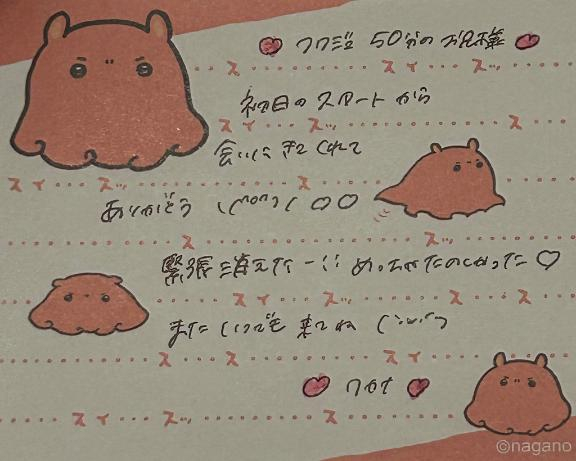 50分のお兄様
ス スイ・・ スッ・・
初日のスタートから
スイ・・・ スッ・・ ス
会いにきてくれて
スイ・・・ スッ・・ ス
ありがとう
ス スッ・・
緊張消えたー!! めっちゃたのしかった♡
スイ・・・ スッ・・ ス ス
またいつでも来てね
ス ス スイ・・
スイ・・・ スッ・・ ス
©nagano